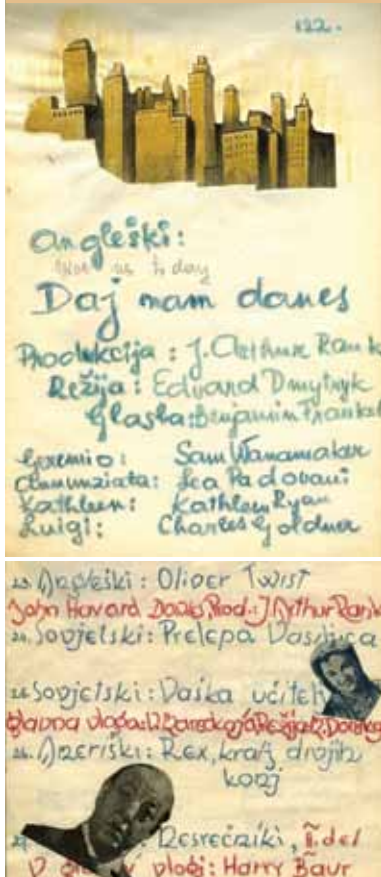 122.
Angleški:
Daj nam danes
Produkcija: J. Arthur Rank
Režija: Edward Dmytryk
Glasba: Benjamin Frankel
Geremio: Sam Wanamaker
Annunziata: Lea Padovani
Kathleen: Kathleen Ryan
Luigi: Charles Goldner
23. Angleški: Oliver Twist
John Havard Davies Prod.: J. Arthur Rank
24. Sovjetski: Prelepa Vasiljica
25. Sovjetski: Vaška učitelj
Glavna vloga: Režija:
26. Ameriški: Rex, kralj divjih
konj
Nesrečniki, II. del
V vlogi: Harry Baur